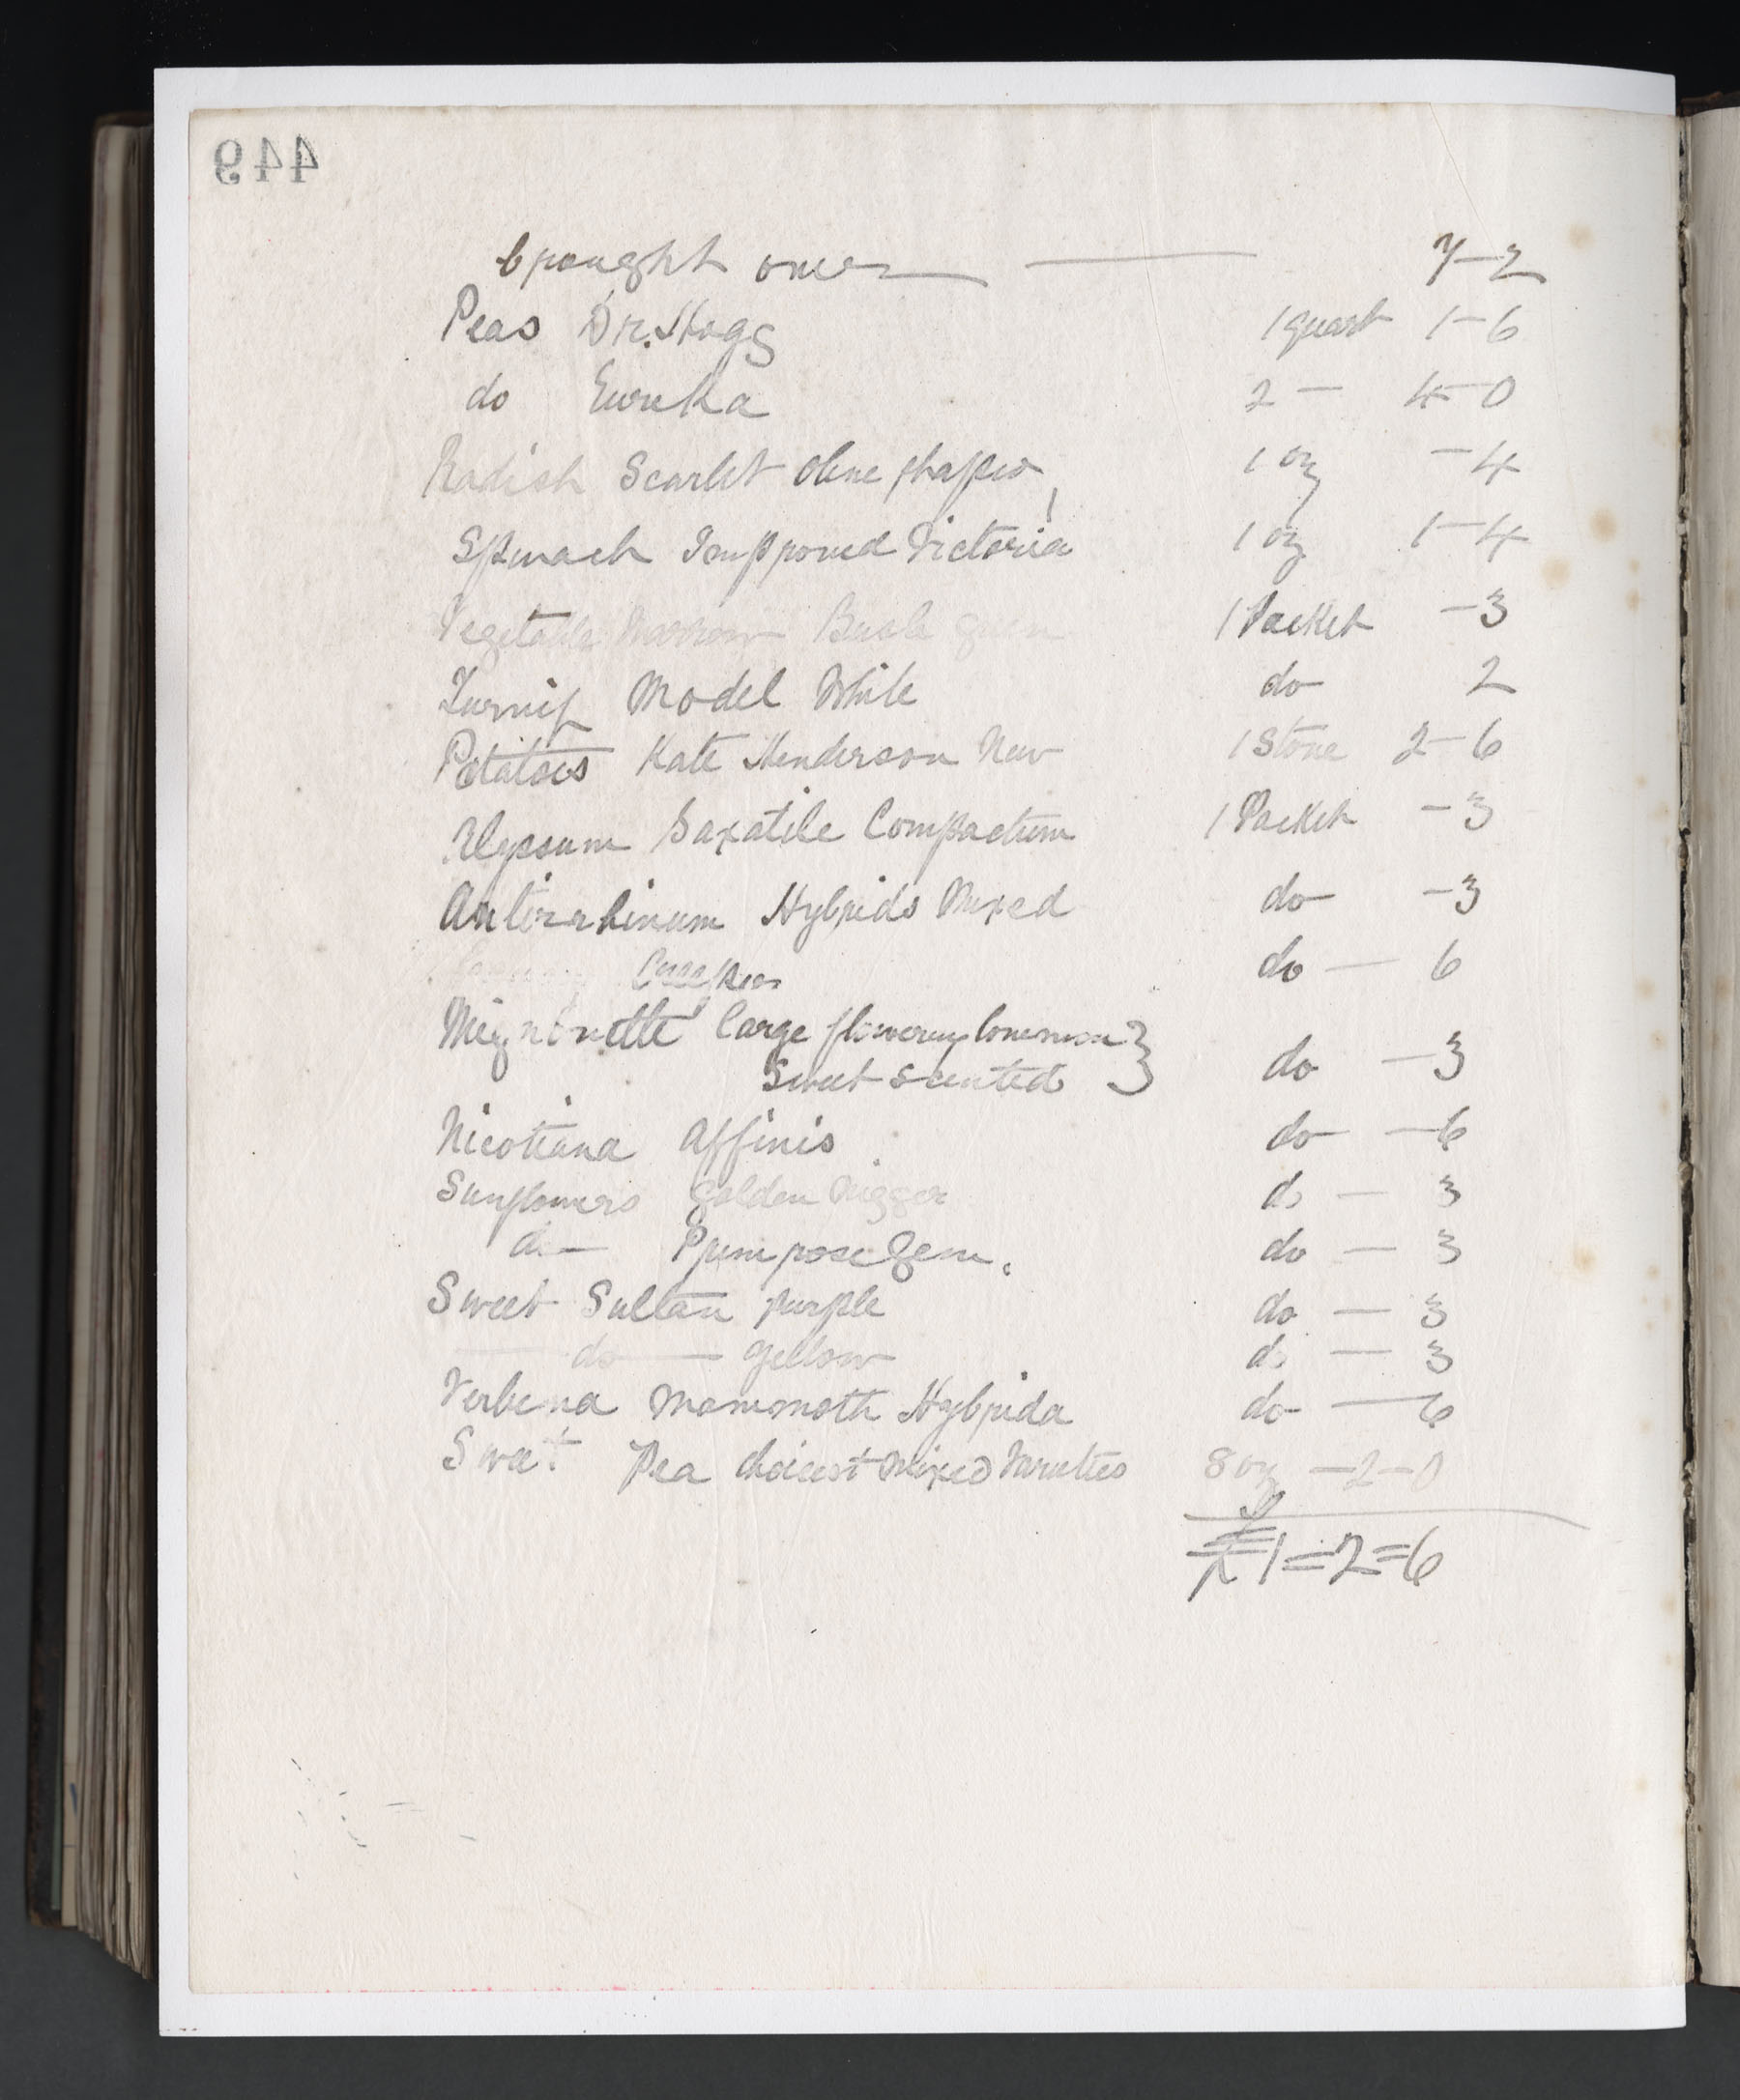 449
brought over — 7-2
Peas Dr. Hogg 1 quart 1-6
do Eureka 2 — 4-0
Radish Scarlet olive shaped 1 oz -4
Spinach Improved Victoria 1 oz 1-4
Vegetable Marrow Bush green 1 Packet -3
Turnip Model White do 2
Potatoes Kate Henderson New 1 Stone 2-6
Alyssum Saxatile Compactum 1 Packet -3
Antirrhinum Hybrids Mixed do -3
Creeper do — 6
Mignonette large flowering common }
Sweet scented } do -3
Nicotiana Affinis do -6
Sunflowers golden Nigger do — 3
do — Primrose Gem. do — 3
Sweet Sultan purple do — 3
do — yellow do — 3
Verbena Mammoth Hybrida do — 6
Sweet Pea choicest mixed Varieties 8 oz -2-0
£1=2=6